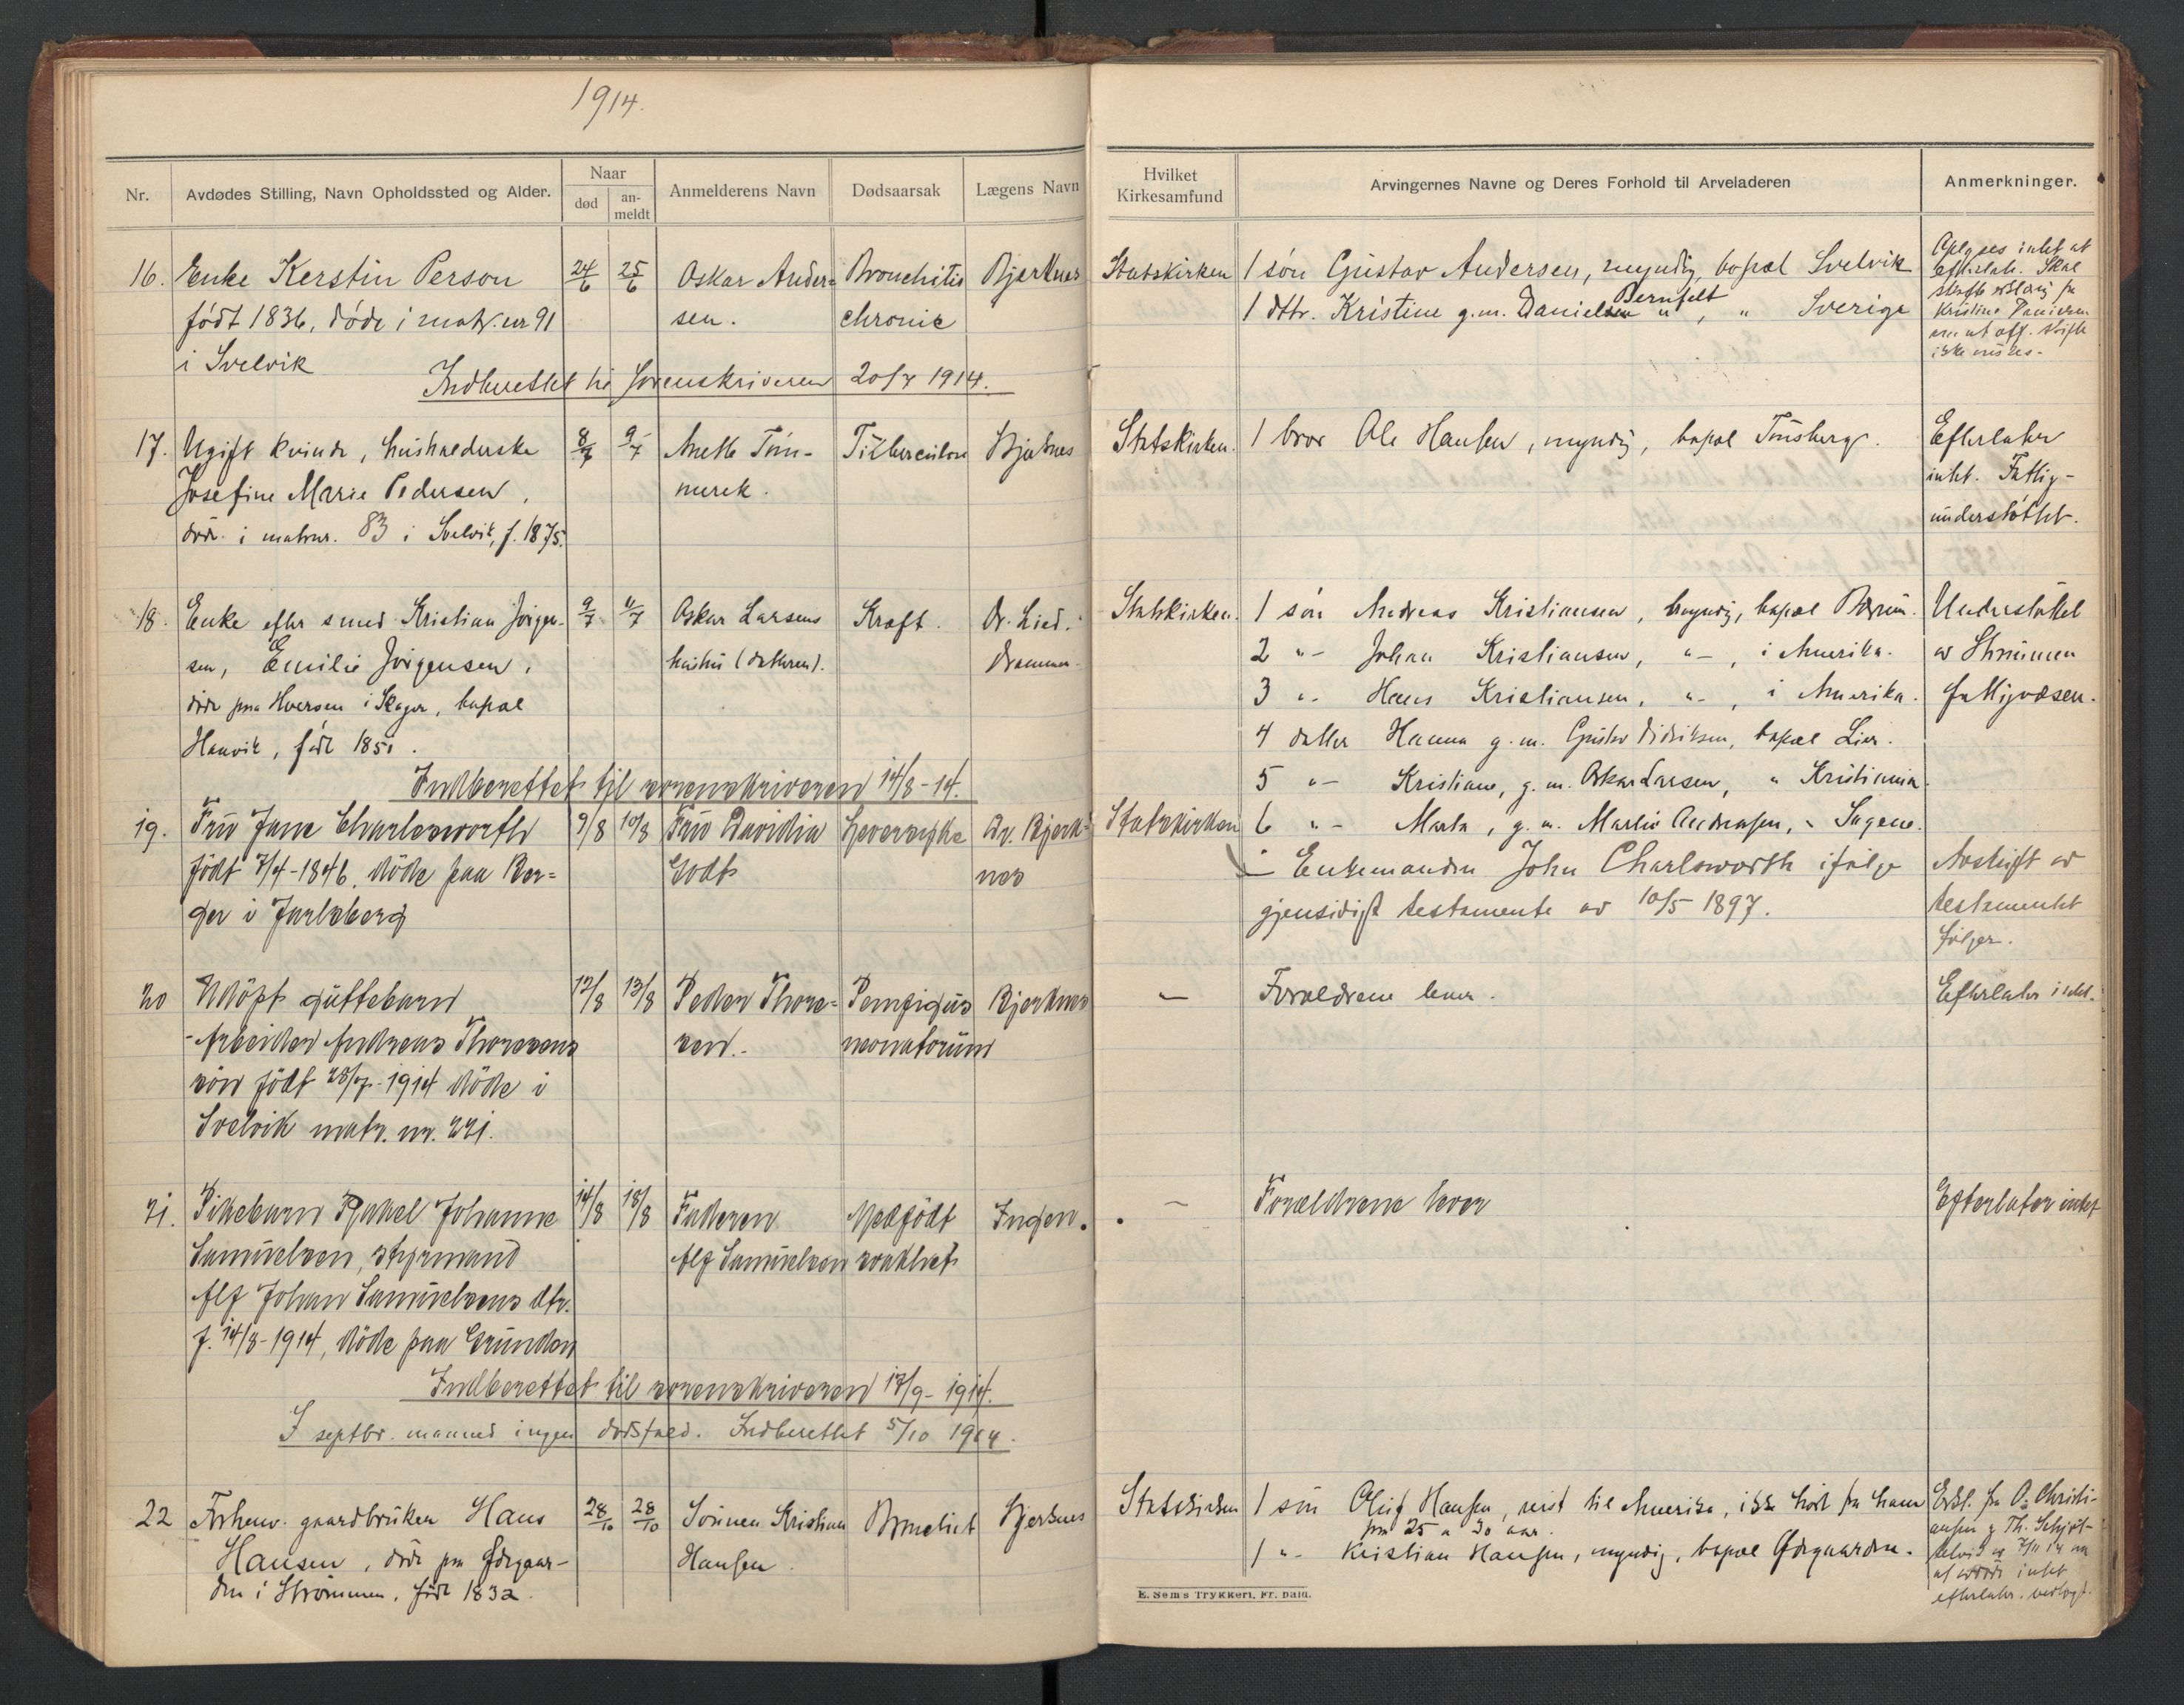 1914.
Nr.
Avdødes Stilling, Navn Opholdssted og Alder.
Naar
død
an-
meldt
Anmelderens Navn
Dødsaarsak
Lægens Navn
Hvilket
Kirkesamfund
Arvingernes Navne og Deres Forhold til Arveladeren
Anmerkninger.
16. Enke Kerstin Person 24/6 25/6 Oskar Ander- Bronchitis Bjerknes Statskirken 1 søn Gustav Andersen, myndig, bopæl Svelvik
født 1836, døde i matr. nr 91 sen. chronic 1 dttr. Kristine g.m. Danielsen Bernfelt " , " Sverige
i Svelvik
Oplyses intet at
efterlate. Skal
skaffe erklæring fra
Kristine Danielsen
om at off. skifte
ikke ønskes.
Indberettet til Sorenskriveren 20/7 1914.
17. Ugift kvinde, husholderske 8/7 9/7 Anette Töm- Tüberculose Bjerknes Statskirken. 1 bror Ole Hansen, myndig, bopæl Tønsberg. Efterlater
Josefine Marie Pedersen, merek. intet. Fattig-
døde i matrnr. 83 i Svelvik, f. 1875. understøttet.
18. Enke efter smed Kristian Jørgen- 9/7 11/7 Oskar Larsens Kræft. Dr. Lied. Statskirken. 1 søn Andreas Kristiansen, myndig, bopæl Bærum. Understøttet
sen, Emilie Jørgensen, hustru (datteren). Drammen. 2 "- Johan Kristiansen, "-, i Amerika. av Strømmen
døde paa Hversen i Skoger, bopæl 3 "- Hans Kristiansen, "-, i Amerika. fattigvæsen.
Hanvik, født 1850. 4 datter Hanna g.m. Gustav Didriksen, bopæl Lier.
Indberettet til sorenskriveren 14/8-14. 5 "- Kristiane, g.m. Oskar Larsen, " Kristiania.
19. Fru Jane Charlesworth 9/8 10/8 Fru Davidia Leversyke Dr. Bjerk- Statskirken 6 "- Marta, g.m. Martin Andreasen, " Sagene.
født 7/4-1846. døde paa Ber- Godt nes Enkemanden John Charlsworth ifølge Avskrift av
ger i Jarlsberg gjensidigt testamente av 10/5 1897. testamentet
følger.
20 Udöpt guttebarn 12/8 13/8 Peder Thore- Pemfigus Bjerknes - Forældrene lever. Efterlater intet.
Arbeider Andreas Thoresens sen.- neonatorum
sön født 28/7-1914 döde i
Svelvik matr. nr. 221.
21. Pikebarn Rakel Johanne 14/8 18/8 Faderen Medfødt Ingen. - Forældrene lever Efterlater intet
Samuelsen, styrmand Alf Samuelsen svakhet
Alf Johan Samuelsens dtr.
f. 14/8-1914, döde paa Grunden
Indberettet til sorenskriveren 17/9-1914.
I septbr. maaned ingen dødsfald. Indberettet 5/10 1914.
22 Forhenv. gaardbruker Hans 28/10 28/10 Sønnen Kristian Bjerknes Statskirken 1 søn Oluf Hansen, reist til Amerika, ikke hört fra ham
Hansen, døde paa Ødegaar- Hansen paa 25 a 30 aar.
den i Strømmen, født 1832. 1 "- Kristian Hansen, myndig, bopæl Ødegaarden.
Erkl. fra O. Christi-
ansen g Th. Schjøl-
at avdøde intet
efterlater. vedlagt.
E. Sem's Trykkeri, Fr.hald.